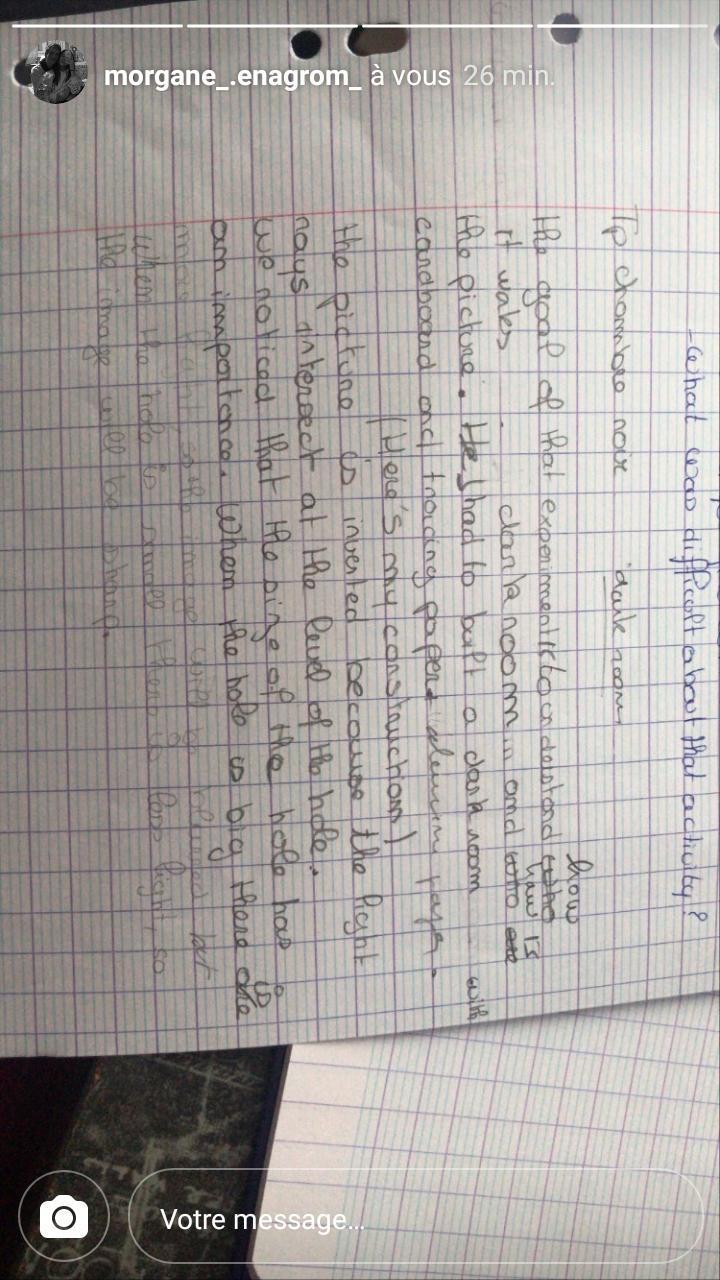 -What was difficolt about that activity?
Tp chambre noir dark room
the goal of that experiment is to understand how
it waks dark room... and how is
the picture. I had to buft a dark room with
cardboard and tracing paper
(Here's my construction)
the picture is inverted because the light
rays intersect at the level of the hole.
we noticed that the size of the hole has
an importance. When the hole is big there is
more light, image will be blurred but
when the hole is small there is less light, so
the image will be sharp.
morgane_.enagrom_ à vous 26 min.
Votre message...